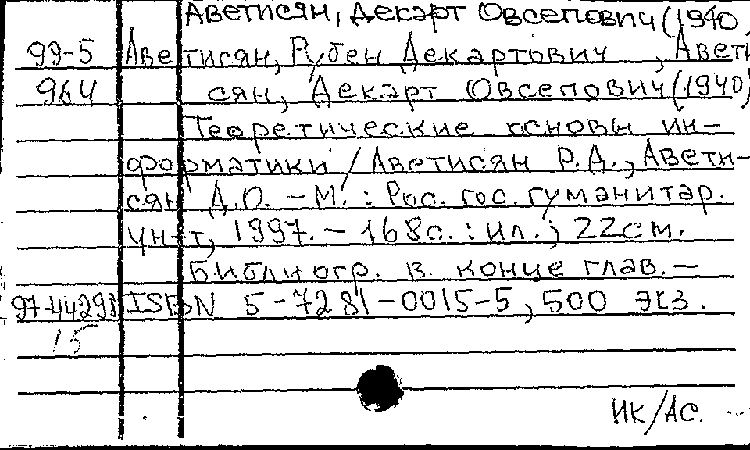 Аветисян, Декарт Овсепович (1940,
99-5 Аветисян, Рубен Декартович, Авети
964 сян, Декарт Овсепович (1940)
Теоретические основы ин-
форматики / Аветисян Р.Д., Авети-
сян Д.О. – М. : Рос. гос. гуманитар.
ун-т, 1997. – 168с. : ил.; 22см.
Библиогр. в конце глав. –
97-44291 ISBN 5-7281-0015-5, 500 экз.
15
ИК/АС.